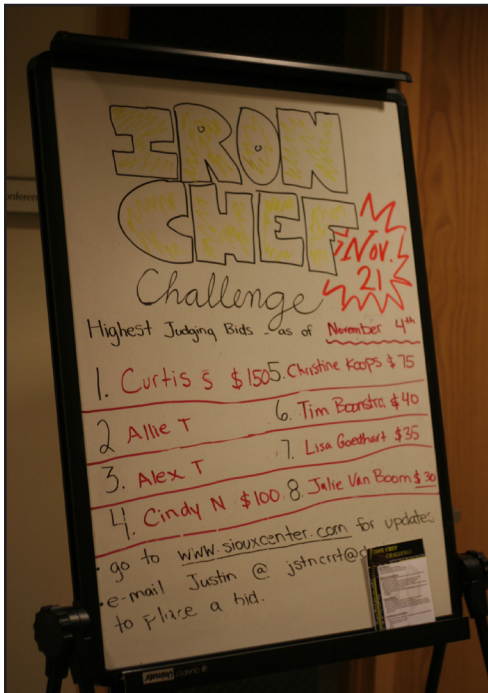 IRON
CHEF
Challenge
Nov.
21
Highest Judging Bids - as of November 4th
1. Curtis S $150
2 Allie T
3. Alex T
4. Cindy N $100
5. Christine Koops $75
6. Tim Boonstra $40
7. Lisa Goedhart $35
8. Julie Van Boom $30
• go to www.siouxcenter.com for updates
• e-mail Justin @ jstncrrt@
to place a bid.
IRON CHEF
CHALLENGE